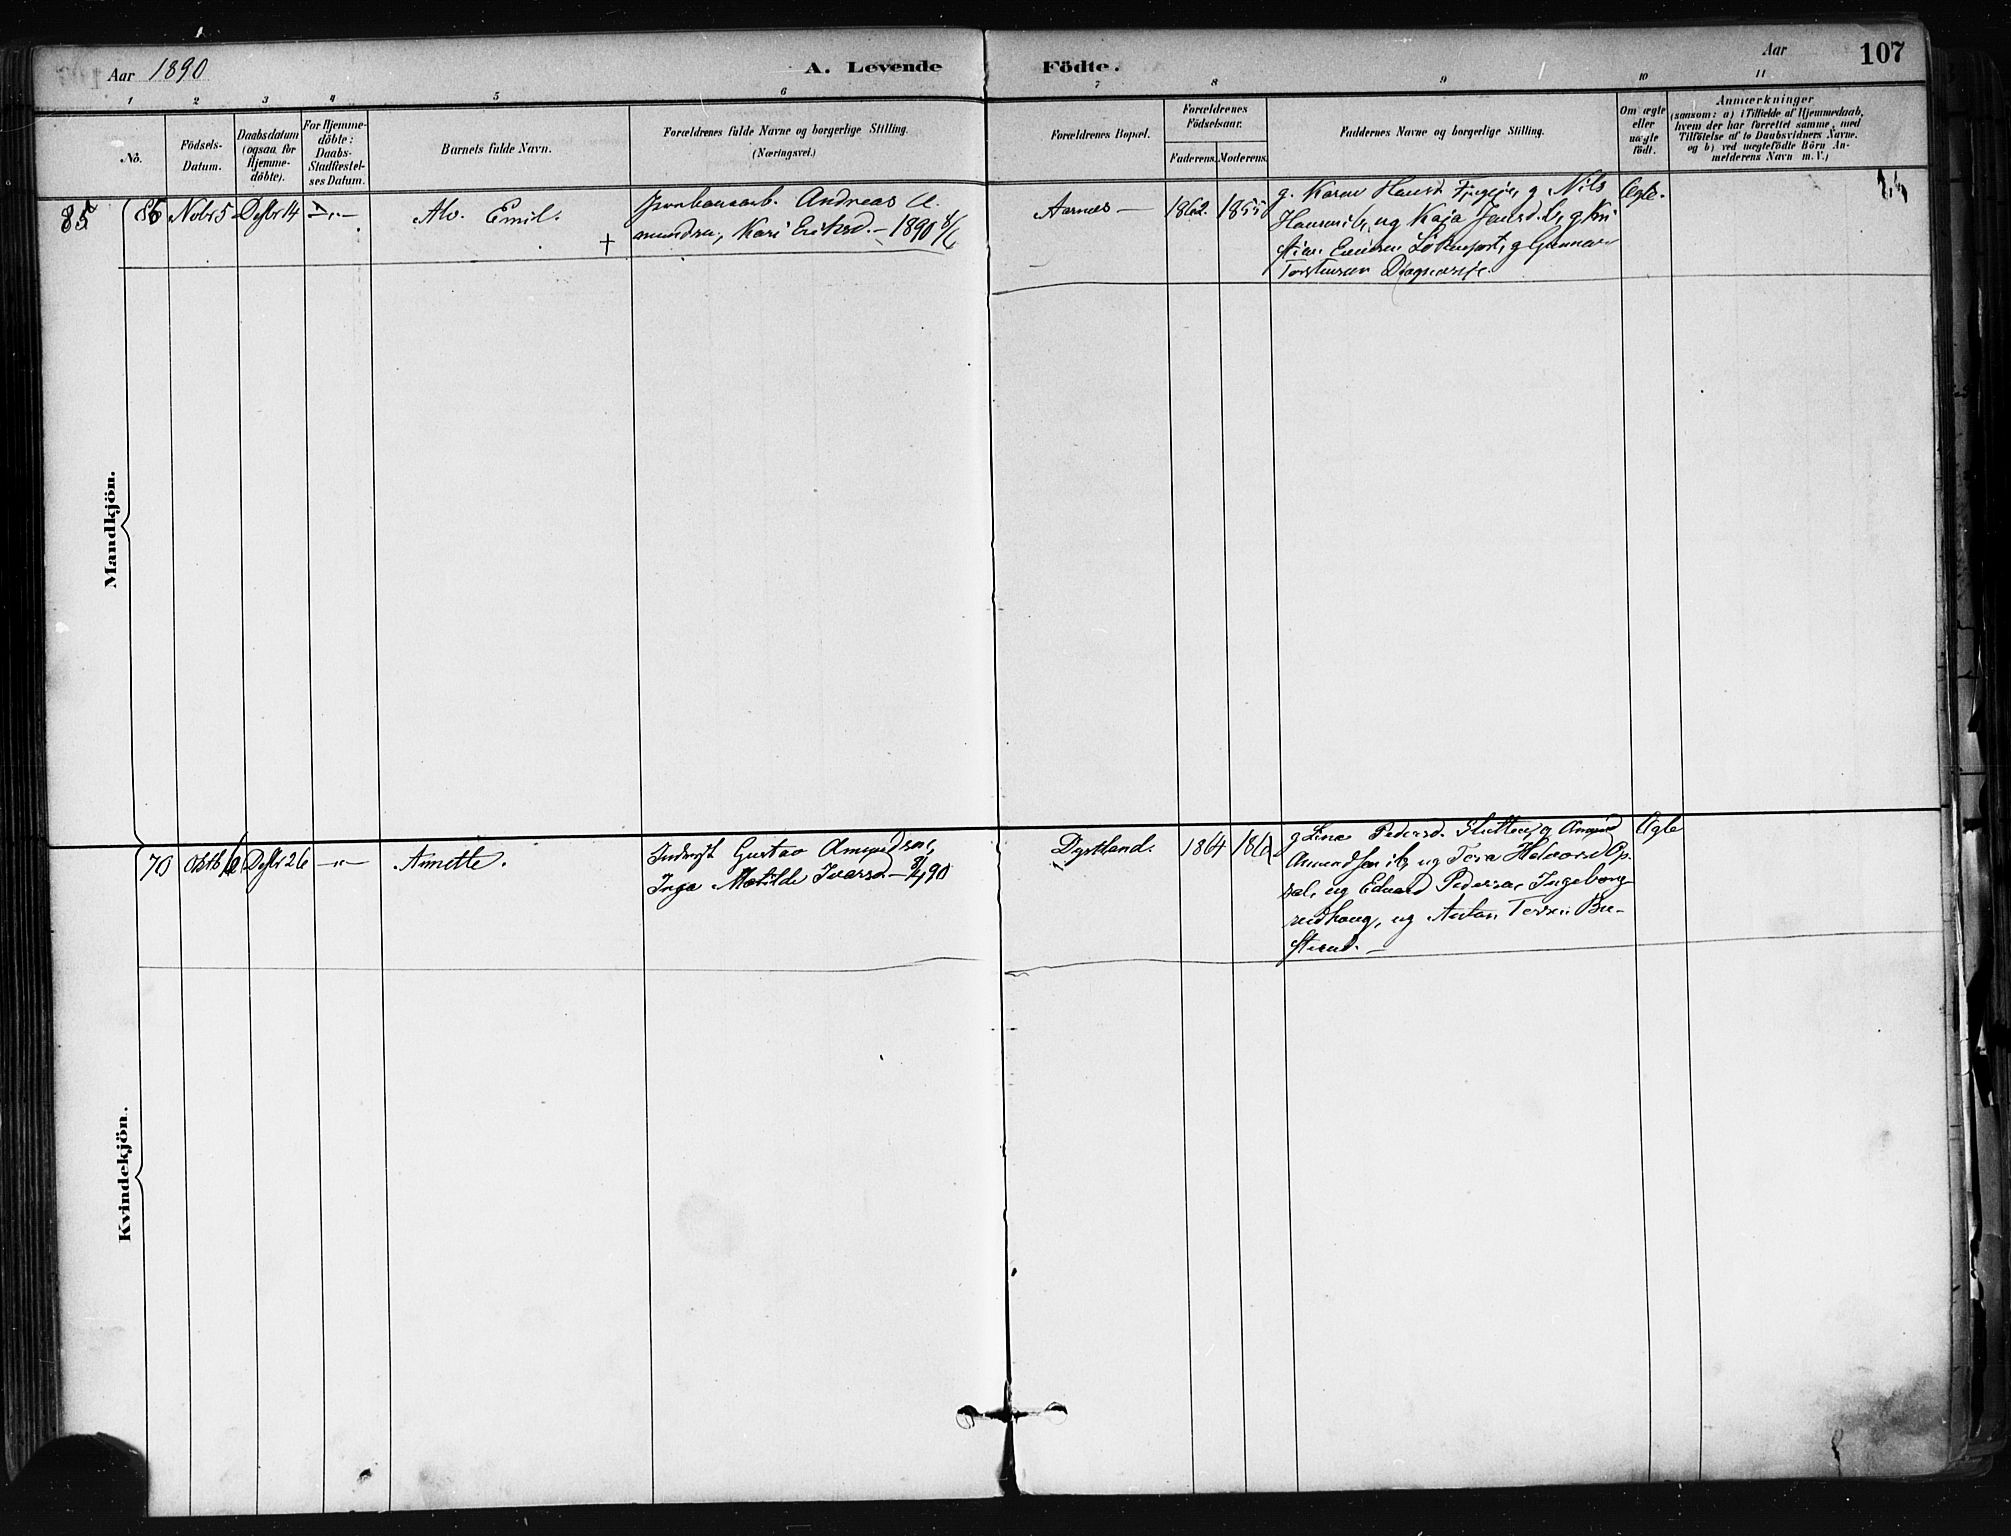 Aar 1890
A. Levende Födte.
Aar
107
1 2 3 4 5 6 7 8 9 10 11
No.
Födsels-
Datum.
Daabsdatum
(ogsaa for
Hjemme-
döbte).
For Hjemme-
döbte:
Daabs-
Stadfæstel-
ses Datum.
Barnets fulde Navn.
Forældrenes fulde Navne og borgerlige Stilling.
(Næringsvei.)
Forældrenes Bopæl.
Forældrenes
Födselsaar.
Faderens. Moderens.
Faddernes Navne og borgerlige Stilling.
Om ægte
eller
uægte
födt.
Anmærkninger
(saasom: a) i Tilfælde af Hjemmedaab,
hvem der har forrettet samme, med
Tilföielse af to Daabsvidners Navne,
og b) ved uægtefödte Börn An-
melderens Navn m. V.)
Mandkjön.
85
86 Nobr 5 Dsbr 14 -"-
Alv. Emil.
Andreas A-
mundsen, Kari Eriksd. - 1890
+
Aarnes -
1862. 1855
g. Karen Hansd. , g Nils
Hansen ib, ug Kaja Jensd. ib, g Kri
stian , g Gunnar
Torstensen
Ægte.
Kvindekjön.
70 Dsbr 26 -"-
Annette.
Gustav Amundsen,
Inga Matilde Ivarsd. - 90
Dystland.
1864
g Lina Pedersd. g Amund
Amundsen ib, ug Halvorsd Op-
sal, ug Edvard Pedersen, Ingeborg-
rudhaug, ug Anton
Ægte